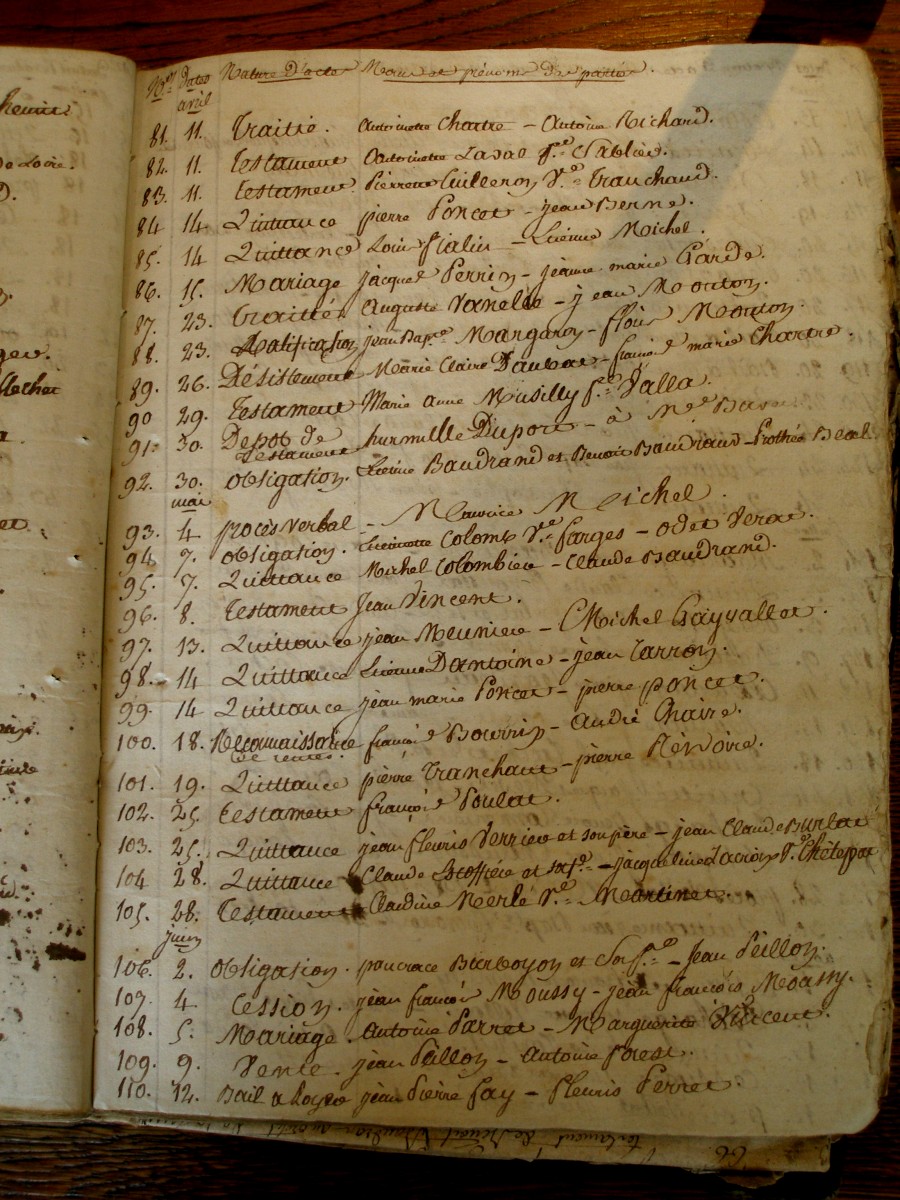 Nos Dates Nature D'actes Noms et prénoms Des parties.
avril
81. 11. Traitté. Antoinette Chartre - Antoine Richard.
82. 11. Testament Antoinette Laval fe. Clablied.
83. 11. Testament. Pierrette Guilleron Ve. Tranchand.
84 14 Quittance pierre Poncet - jean Benne.
85. 14 Quittance Louis fialin - Etienne Michel.
86. 15. Mariage jacques Perrin - jeanne marie Garde.
87. 23. Traitté Auguste Vanelle - jean Mouton.
88. 23. Ratification jean Bapte. Margaron - floris Mouton.
89. 26. Désistement Marie Claire Daubat - françoise marie Chartre.
90 29. Testament Marie anne Musilly fe. Valla.
91. 30. Depot de hurmille Duport - à Me
testament
92. 30. obligation. Etienne Baudrand et Benoit Baudrand - Prothée Beal
mai
93. 4 procès verbal - Maurice Michel.
94. 7. obligation. Etiennette Colomb Ve. farges - odet Verat.
95. 7. Quittance Michel Colombier - Claude Baudrand.
96. 8. Testament Jean Vincent.
97. 13. Quittance jean Meunier - Michel Gayvallet.
98. 14 Quittance Etienne Dantoine - jean Carron.
99. 14 Quittance jean marie Poncet - pierre poncet.
100. 18. Reconnaissance françois Bourrin - André Chaire.
de rentes.
101. 19. Quittance pierre Tranchant - pierre Révoire.
102. 25. Testament françois Poulat.
103. 25. Quittance jean fleuris Verrier et son père - jean Claude Burlat
104 28. Quittance Claude et sa fe. - jacqueline Lacroix Ve.
105. 28. Testament Claudine Merle Ve. Martinet.
juin
106. 2. obligation. pancrace Barboyon et Sa fe. - Jean Peillon.
107. 4 Cession. jean françois Moussy - jean françois Moussy.
108. 5. Mariage. Antoine Parret - Marguerite Vincent.
109. 9. Vente. jean Peillon - Antoine forest.
110. 12. Bail a loyer jean Pierre fay - fleuris Perret.